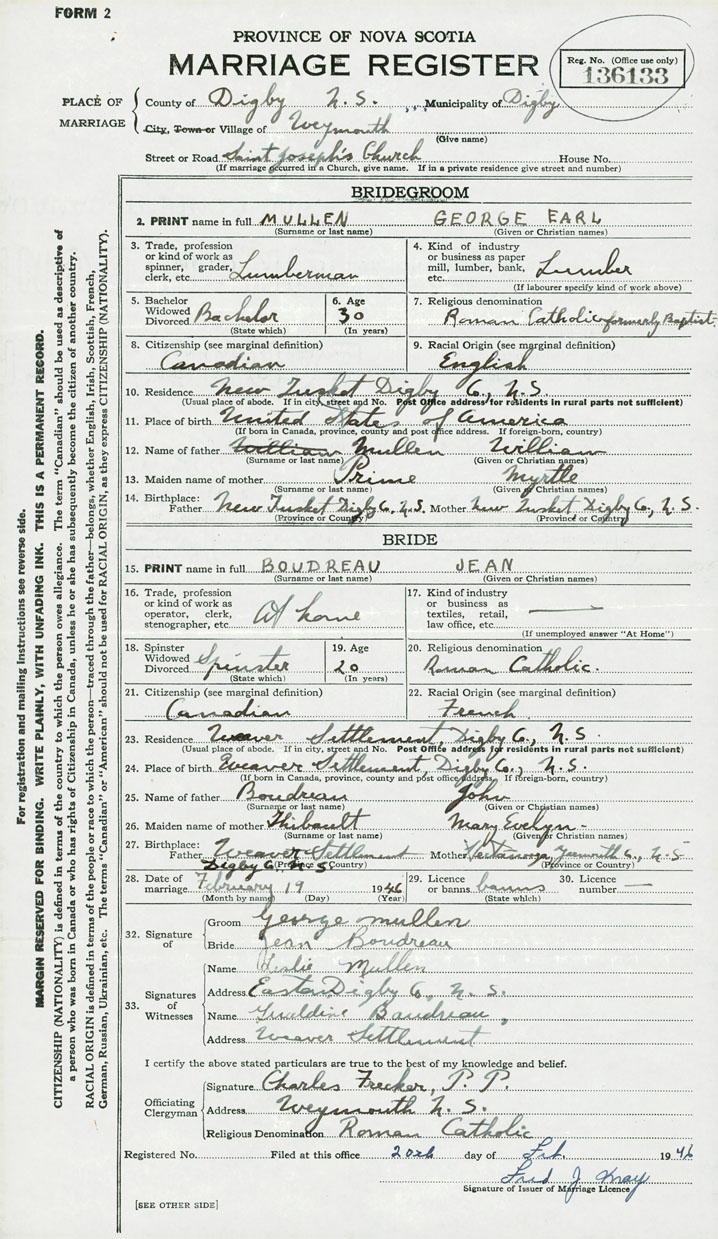 FORM 2
PROVINCE OF NOVA SCOTIA
MARRIAGE REGISTER
Reg. No. (Office use only)
136133
PLACE OF MARRIAGE
County of Digby N.S. Municipality of Digby
City, Town or Village of Weymouth
(Give name)
Street or Road Saint Joseph's Church House No.
(If marriage occurred in a Church, give name. If in a private residence give street and number)
BRIDEGROOM
2. PRINT name in full MULLEN GEORGE EARL
(Surname or last name) (Given or Christian names)
3. Trade, profession or kind of work as spinner, grader, clerk, etc. Lumberman
4. Kind of industry or business as paper mill, lumber, bank, etc. Lumber
(If labourer specify kind of work above)
5. Bachelor Widowed Divorced Bachelor
(State which)
6. Age 30
(In years)
7. Religious denomination
Roman Catholic formerly Baptist.
8. Citizenship (see marginal definition)
Canadian
9. Racial Origin (see marginal definition)
English
10. Residence New Tusket Digby Co., N.S.
(Usual place of abode. If in city, street and No. Post Office address for residents in rural parts not sufficient)
11. Place of birth United States of America
(If born in Canada, province, county and post office address. If foreign-born, country)
12. Name of father William Mullen William
(Surname or last name) (Given or Christian names)
13. Maiden name of mother Prime Myrtle
(Surname or last name) (Given or Christian names)
14. Birthplace: Father New Tusket Digby Co., N.S. Mother New Tusket Digby Co., N.S.
(Province or Country) (Province or Country)
BRIDE
15. PRINT name in full BOUDREAU JEAN
(Surname or last name) (Given or Christian names)
16. Trade, profession or kind of work as operator, clerk, stenographer, etc. At home
17. Kind of industry or business as textiles, retail, law office, etc.
(If unemployed answer "At Home")
18. Spinster Widowed Divorced Spinster
(State which)
19. Age 20
(In years)
20. Religious denomination
Roman Catholic.
21. Citizenship (see marginal definition)
Canadian
22. Racial Origin (see marginal definition)
French
23. Residence Weaver Settlement, Digby Co., N.S.
(Usual place of abode. If in city, street and No. Post Office address for residents in rural parts not sufficient)
24. Place of birth Weaver Settlement, Digby Co., N.S.
(If born in Canada, province, county and post office address. If foreign-born, country)
25. Name of father Boudreau John
(Surname or last name) (Given or Christian names)
26. Maiden name of mother Thibault Mary Evelyn
(Surname or last name) (Given or Christian names)
27. Birthplace: Father Weaver Settlement Mother Yarmouth Co., N.S
Digby Co N S
(Province or Country) (Province or Country)
28. Date of marriage February 19 1946
(Month by name) (Day) (Year)
29. Licence or banns banns
(State which)
30. Licence number —
32. Signature of
Groom George Mullen
Bride Jean Boudreau
33. Signatures of Witnesses
Name Leslie Mullen
Address Easton Digby Co, N.S.
Name Geraldine Boudreau,
Address Weaver Settlement
I certify the above stated particulars are true to the best of my knowledge and belief.
Officiating Clergyman
Signature Charles Frecker, P.P.
Address Weymouth N.S.
Religious Denomination Roman Catholic
Registered No. Filed at this office 20th day of Feb. 1946
Fred J
Signature of Issuer of Marriage Licence
[SEE OTHER SIDE]
For registration and mailing instructions see reverse side.
MARGIN RESERVED FOR BINDING. WRITE PLAINLY, WITH UNFADING INK. THIS IS A PERMANENT RECORD.
CITIZENSHIP (NATIONALITY) is defined in terms of the country to which the person owes allegiance. The term "Canadian" should be used as descriptive of
a person who was born in Canada or who has rights of Citizenship in Canada, unless he or she has subsequently become the citizen of another country.
RACIAL ORIGIN is defined in terms of the people or race to which the person—traced through the father—belongs, whether English, Irish, Scottish, French,
German, Russian, Ukrainian, etc. The terms "Canadian" or "American" should not be used for RACIAL ORIGIN, as they express CITIZENSHIP (NATIONALITY).